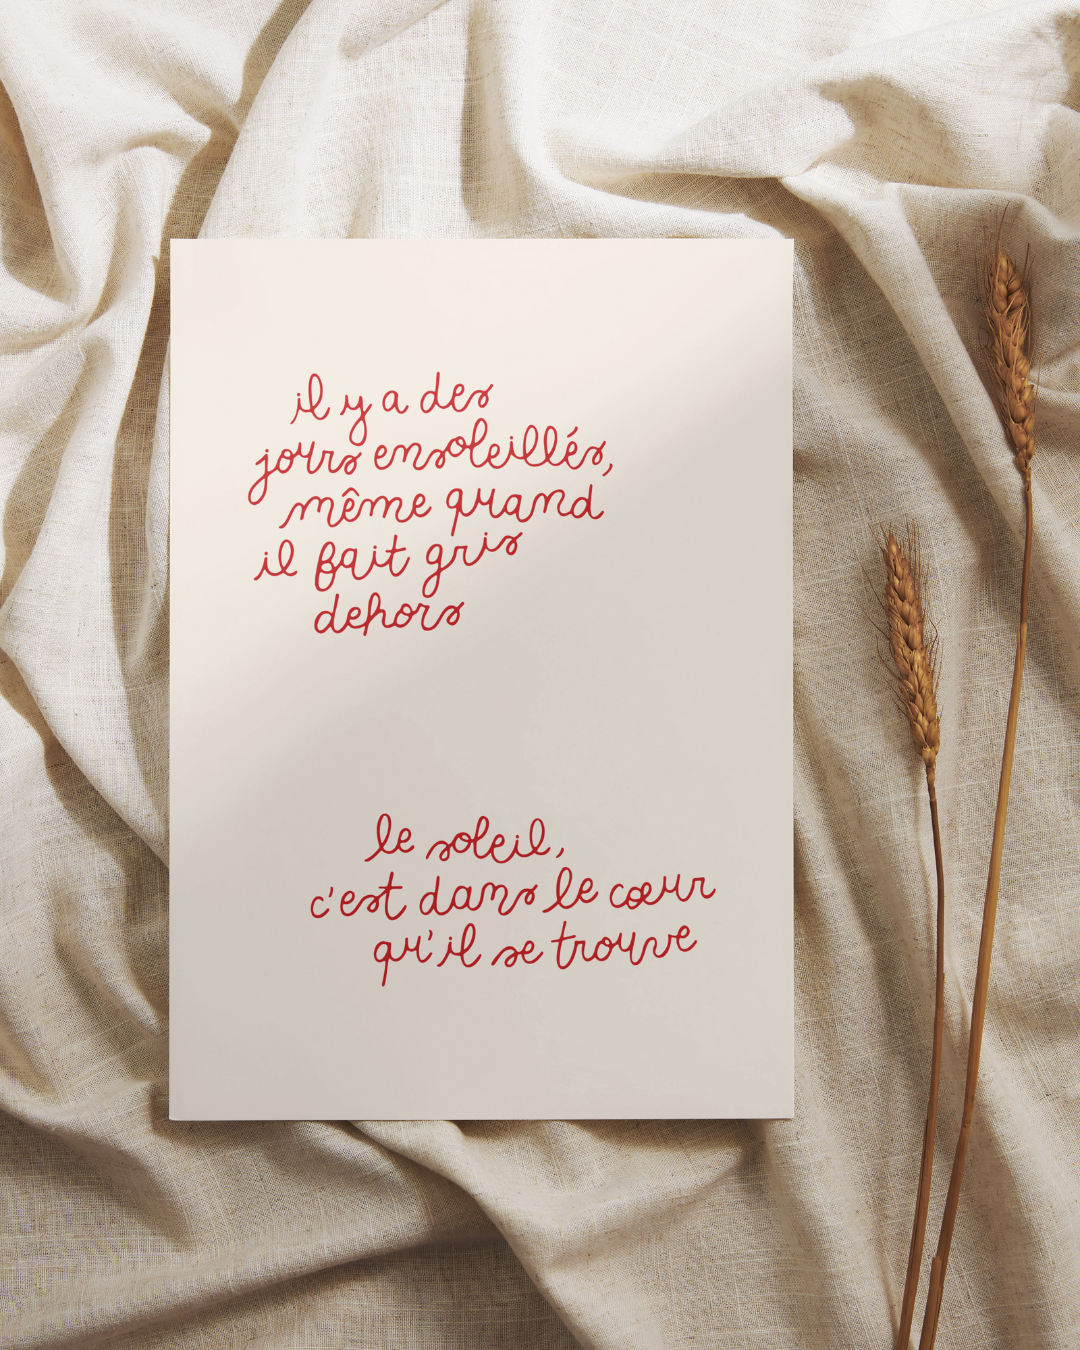 il y a des
jours ensoleillés,
même quand
il fait gris
dehors
le soleil,
c'est dans le cœur
qu'il se trouve